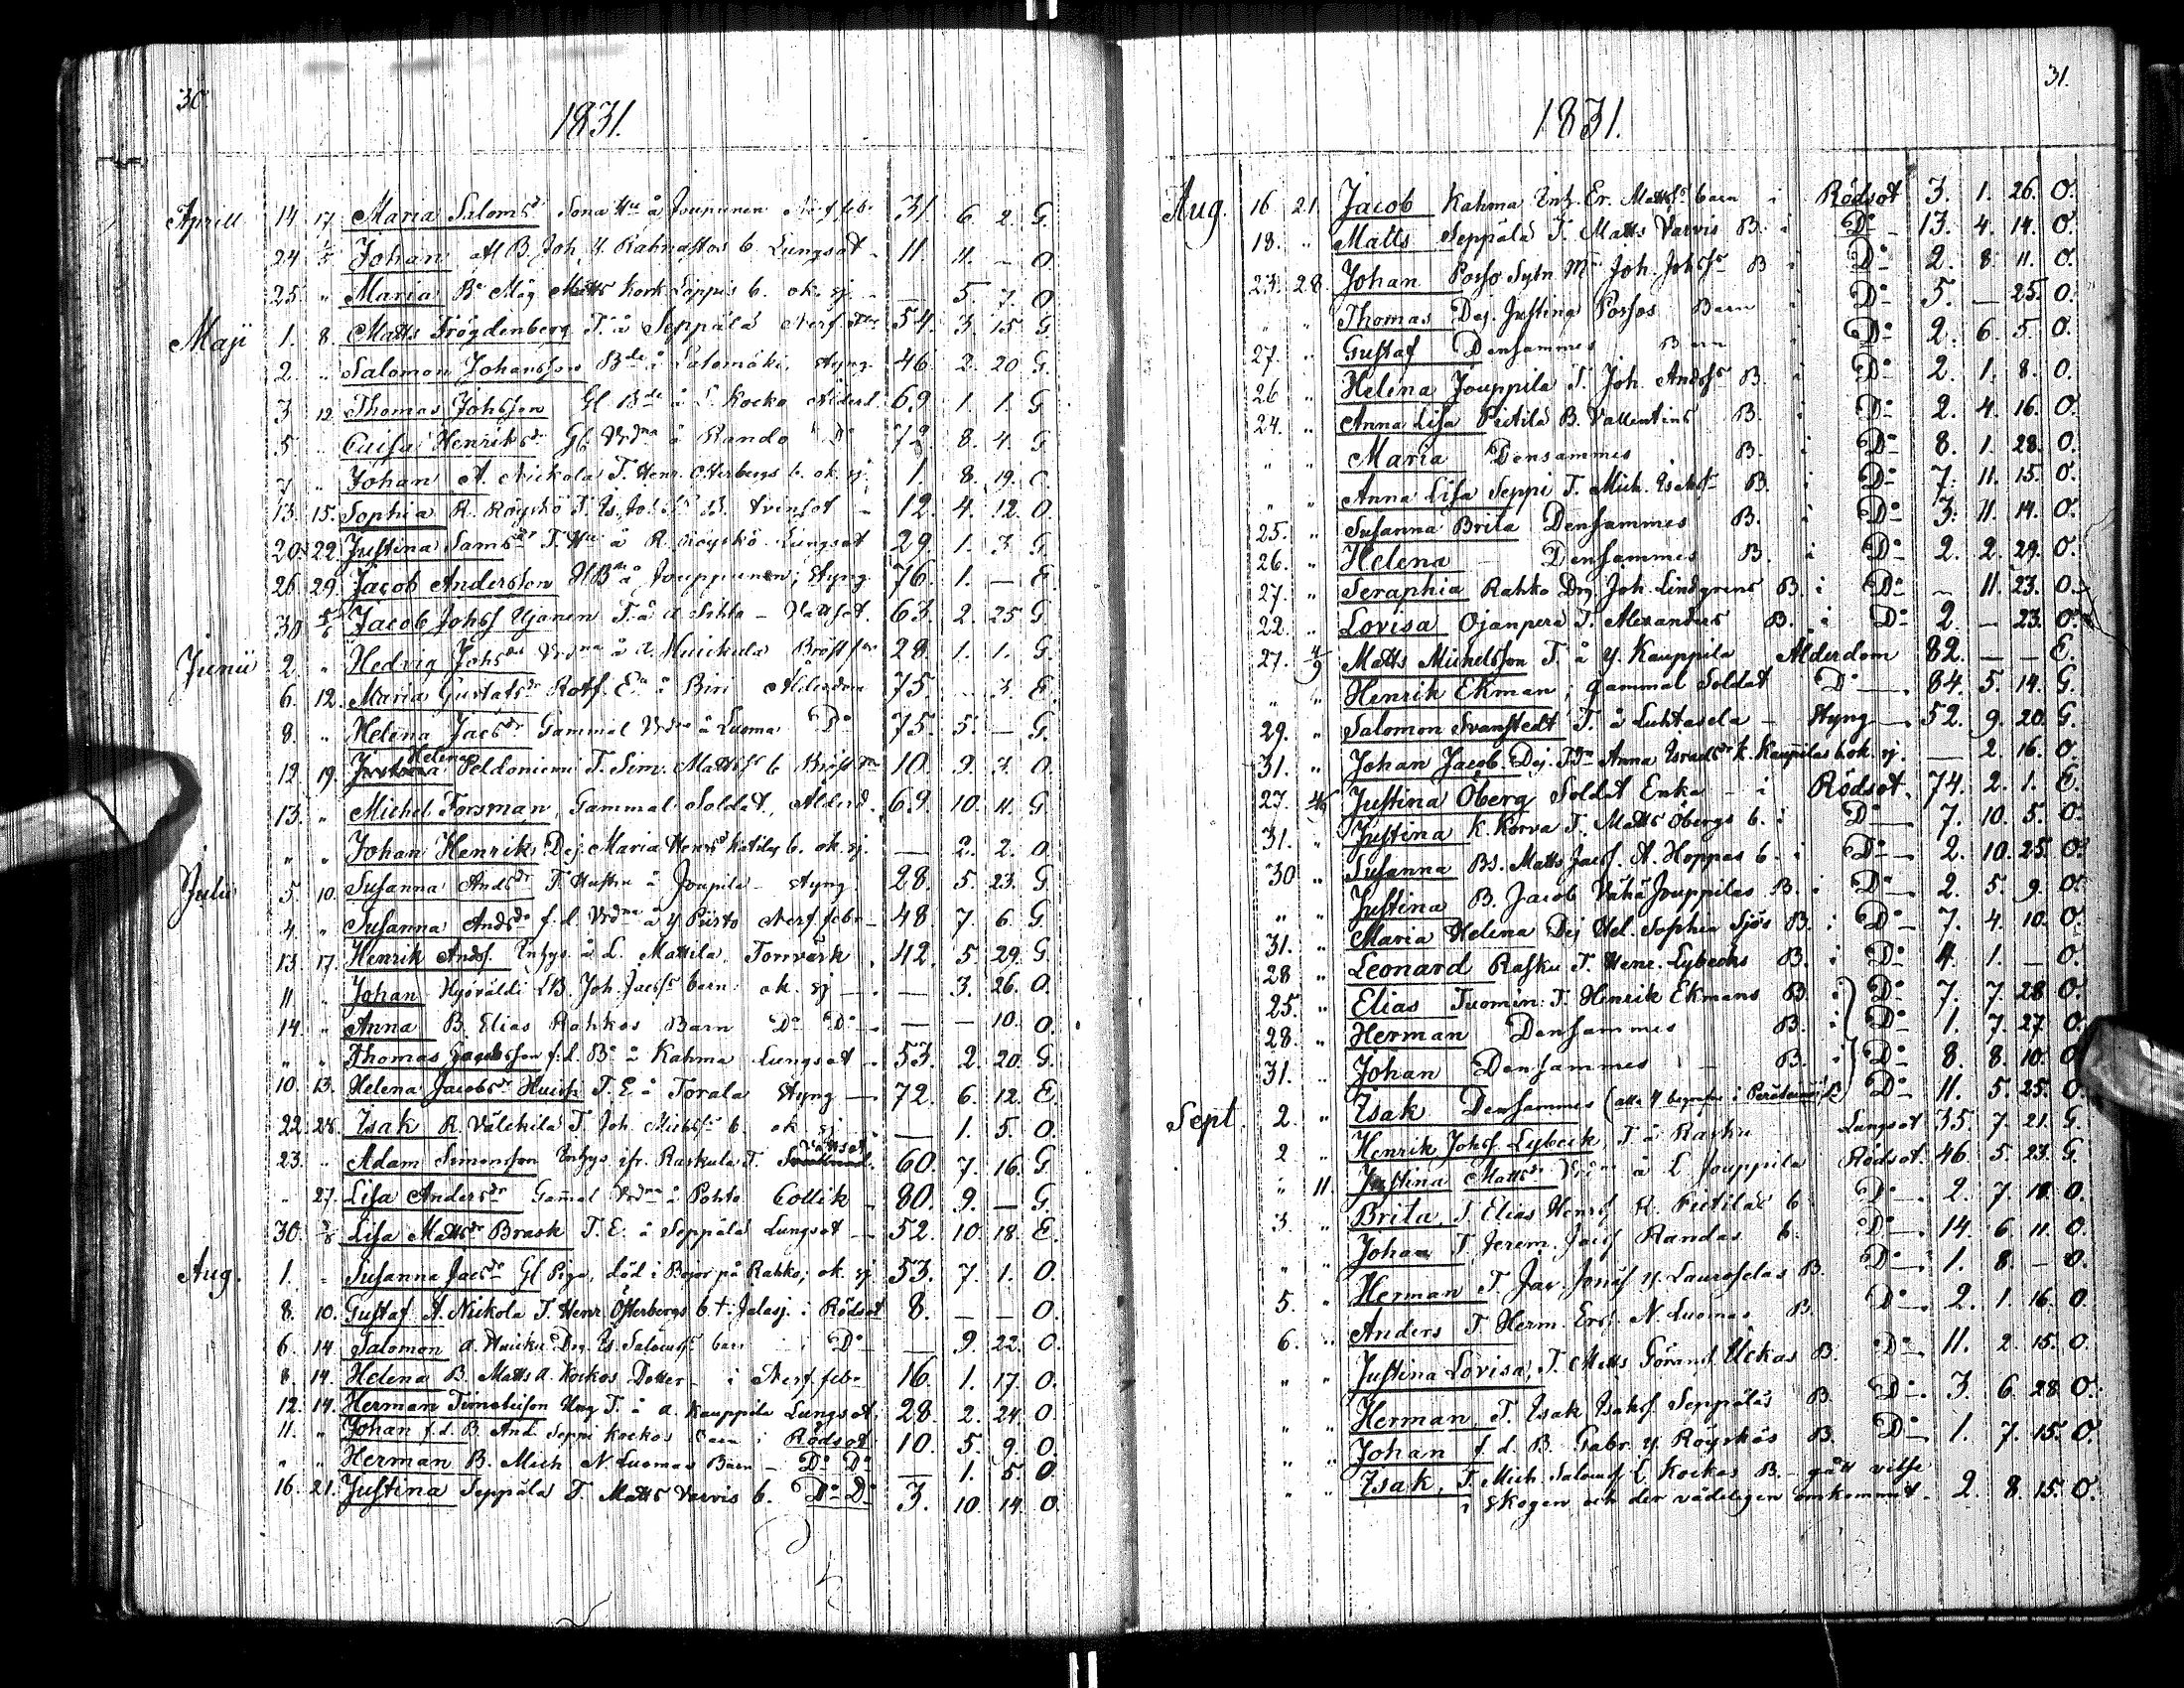 30.
1831.
Aprill 14. 17. Maria Salomsdr Sona Hu å Joupunen Nerffeb. 31. 6. 2. G.
24 1/5 Johan B. Joh. Y. Rahnastos b. Lungsot 11 11. — O.
25. " Maria Bs Måg Matts Kork Seppis b. ok. sj. — 5. 7. O
Maji 1. 8. Matts Trögdenberg T. å Seppälä Nerf.feb. 54. 3. 15 G.
2. " Salomon Johansson Bde å Salomäki, Styng 46. 2. 20 G.
3 12. Thomas Johsson Gl. Bde å L. Kocko Ålderd. 69. 1. 1. G
5. " Caisa Henriksdr Gl. Vrdna å Rando Do 72. 8. 4. G
7 " Johan A. Nickola T. Henr. Österbergs b. ok. sj. 1. 8. 19. O.
13. 15. Sophia R. Röyskö T. Is. d. Trinsot 12. 4. 12. O
20. 22. Justina Samsdr T. Hu å R. Röyskö Lungsot 29. 1. 3 G
26 29. Jacob Andersson å Jouppunen, Styng 76. 1. — E.
30 5/6 Jacob Johsf Ujanen T. å A. Sihto - Vattsot. 63. 2. 25 G
Junii 2. " Hedvig Johsdr Vrdna å A. Huickula Bröstfeb 28. 1. 1. G.
6. 12. Maria Gustafsdr Rotf. Ea å Biri Ålderdom 75. - 3 E.
8. " Helena Jacsdr Gammal Vrdna å Luoma Do 75. 5. — G.
12. 19. Helena Peldoniemi T. Sim. Mattss b. Bröst 10. 9. 3. O.
13. " Michel Forsman, Gammal Soldat, Ålderd. 69. 10. 11. G.
" " Johan Henrik, Dej. Maria Henrsdr Katilas b. ok. sj. — 2. 2. O.
Julii 5. 10. Susanna Andsdr T. Hustru å Joupila - Styng 28. 5. 23. G
4. " Susanna Andsdr f.d. Vrdna å Y Pürto Nerf.feb. 48. 7. 6. G
13. 17. Henrik Andsf. Inhys. å L. Mattila, Torrvärk 42. 5. 29. G
11. " Johan Hyöväldi LB. Joh. Jacsfs barn ok. sj — 3. 26. O.
14. " Anna B. Elias Rahkos Barn Do Do — — 10. O.
" " Thomas Jacobsson f.d. Bo å Kahma Lungsot 53. 2. 20. G.
10. 13. Helena Jacobsdr T. E. å Torala Styng 72. 6. 12. E.
22. 28. Isak R. Välchila T. Joh. Michsfs b. ok. sj — 1. 5. O.
23. " Adam Simonsson Inhys ifr. Raskula T. Vattsot 60. 7. 16. G
" 27. Lisa Andersdr Gammal Vrdna å Pohto Collik 80. 9. — G.
30. 3/8 Lisa Mattsdr Brask T. E. å Seppälä Lungsot 52. 10. 18. E.
Aug. 1. " Susanna Jacsdr Gl. Piga, död i Bojor på Rahko; ok. sj 53. 7. 1. O.
8. 10. Gustaf A. Nickola T. Henr. Österbergs b. †. i Jalasj. i Rödsot 8. — — O.
6. 14. Salomon A. Huicku Drg. Is. Salomsfs barn i Do — 9. 22. O.
8. 14. Helena B. Matts A. Kockos Dotter - i Nerf.feb. 16. 1. 17. O.
12. 14. Herman Timoteisson Ung T. å A. Kauppila Lungsot 28. 2. 24. O.
11. " Johan f.d. B. And. Seppi Kockos barn i Rödsot 10. 5. 9. O.
" " Herman B. Mich. N. Luomas Barn - Do Do — 1. 5. O
16. 21. Justina Seppälä T. Matts Varvis b. Do Do 3. 10. 14. O.
31.
1831.
Aug. 16. 21. Jacob Kahma Inh. Er. Mattsfs barn i Rödsot 3. 1. 26. O.
18. " Matts Seppälä T. Matts Varvis B. i Do 13. 4. 14. O.
23. 28. Johan Posso Sytn. Mn Joh. Johsfs B i Do 2. 8. 11. O.
" " Thomas Dej. Justina Possos Barn i Do 5. — 25. O.
27. " Gustaf Densammes Barn i Do 2. 6. 5. O.
26 " Helena Jouppila T. Joh. Andsfs B. i Do 2. 1. 8. O.
24. " Anna Lisa Pietilä B. Vallentins B. i Do 2. 4. 16. O.
" " Maria Densammes B. i Do 8. 1. 28. O.
" " Anna Lisa Seppi T. Mich. Isaksfs B. i Do 7. 11. 15. O.
25. " Susanna Brita Densammes B. i Do 3. 11. 14. O.
26. " Helena Densammes B. i Do 2. 2. 29. O.
27. " Seraphia Rahko Drg. Joh. Lindgrens B. i Do — 11. 23. O.
22. " Lovisa Ojanperä T. Alexanders B. i Do 2. — 23. O.
27. 4/9 Matts Michelsson T. å Y. Kauppila Ålderdom 82. — — E.
" " Henrik Ekman; gammal Soldat Do 84. 5. 14. G.
29. " Salomon Svanstedt T. å Luhtasela - Styng 52. 9. 20. G.
31. " Johan Jacob Dej. Anna Isracsdr K. Kaupilas b. ok. sj. — 2. 16. O.
27. Justina Öberg Soldat Enka - i Rödsot. 74. 2. 1. E.
31. " Justina K. Korva T. Matts Öbergs b. i Do 7. 10. 5. O.
30 " Susanna Bs. Matts Jacsf. A. Hoppas b. i Do 2. 10. 25. O.
" " Justina B. Jacob Vähä Jouppilas B. i Do 2. 5. 9. O.
31. " Maria Helena Dej. Hel. Sophia Sjös B. i Do 7. 4. 10. O
28 " Leonard Rasku T. Henr. Lybecks B. i Do 4. 1. — O.
25. " Elias Tuomin. T. Henrik Ekmans B. i Do 7. 7. 28 O.
28. " Herman Densammes B. i Do 1. 7. 27. O.
31. " Johan Densammes B. i Do 8. 8. 10. O
Sept. 2. " Isak Densammes (alla 4 begrafne i Do 11. 5. 25. O
2 " Henrik Johsf. Lybeck, T å Rasku Lungsot 35. 7. 21. G.
" 11. Justina Mattsdr å L Jouppila Rödsot. 46. 5. 23. G
3. " Brita, T Elias Henrsf R. Pietiläs b. Do 2. 7. 18. O.
" " Johan T. Jerem. Jacsf Randas b. Do 14. 6. 11. O.
5. " Herman T Jac. Jonäsf Y. Lauroselas B. Do 1. 8. — O.
6. " Anders T Herm. Ersf. N. Luomas B. Do 2. 1. 16. O.
" " Justina Lovisa, T. Matts Göransf. Uckas B. Do 11. 2. 15. O.
" " Herman, T. Isak Isaksf. Seppäläs B. Do 3. 6. 28. O.
" " Johan f.d. B. Gabr. Y Röyskös B. Do 1. 7. 15. O.
" " Isak, T. Mich. Salomsf L Kockos B. - gått vilse
i skogen och der vådeligen omkommit. 2. 8. 15. O.